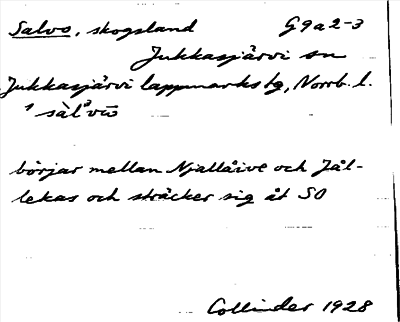 Salvo, skogsland G9a2-3
Jukkasjärvi sn
Jukkasjärvi lappmarks tg, Norrb. l.
börjar mellan Njallåive och Jål-
lekas och sträcker sig åt SO
Collinder 1928